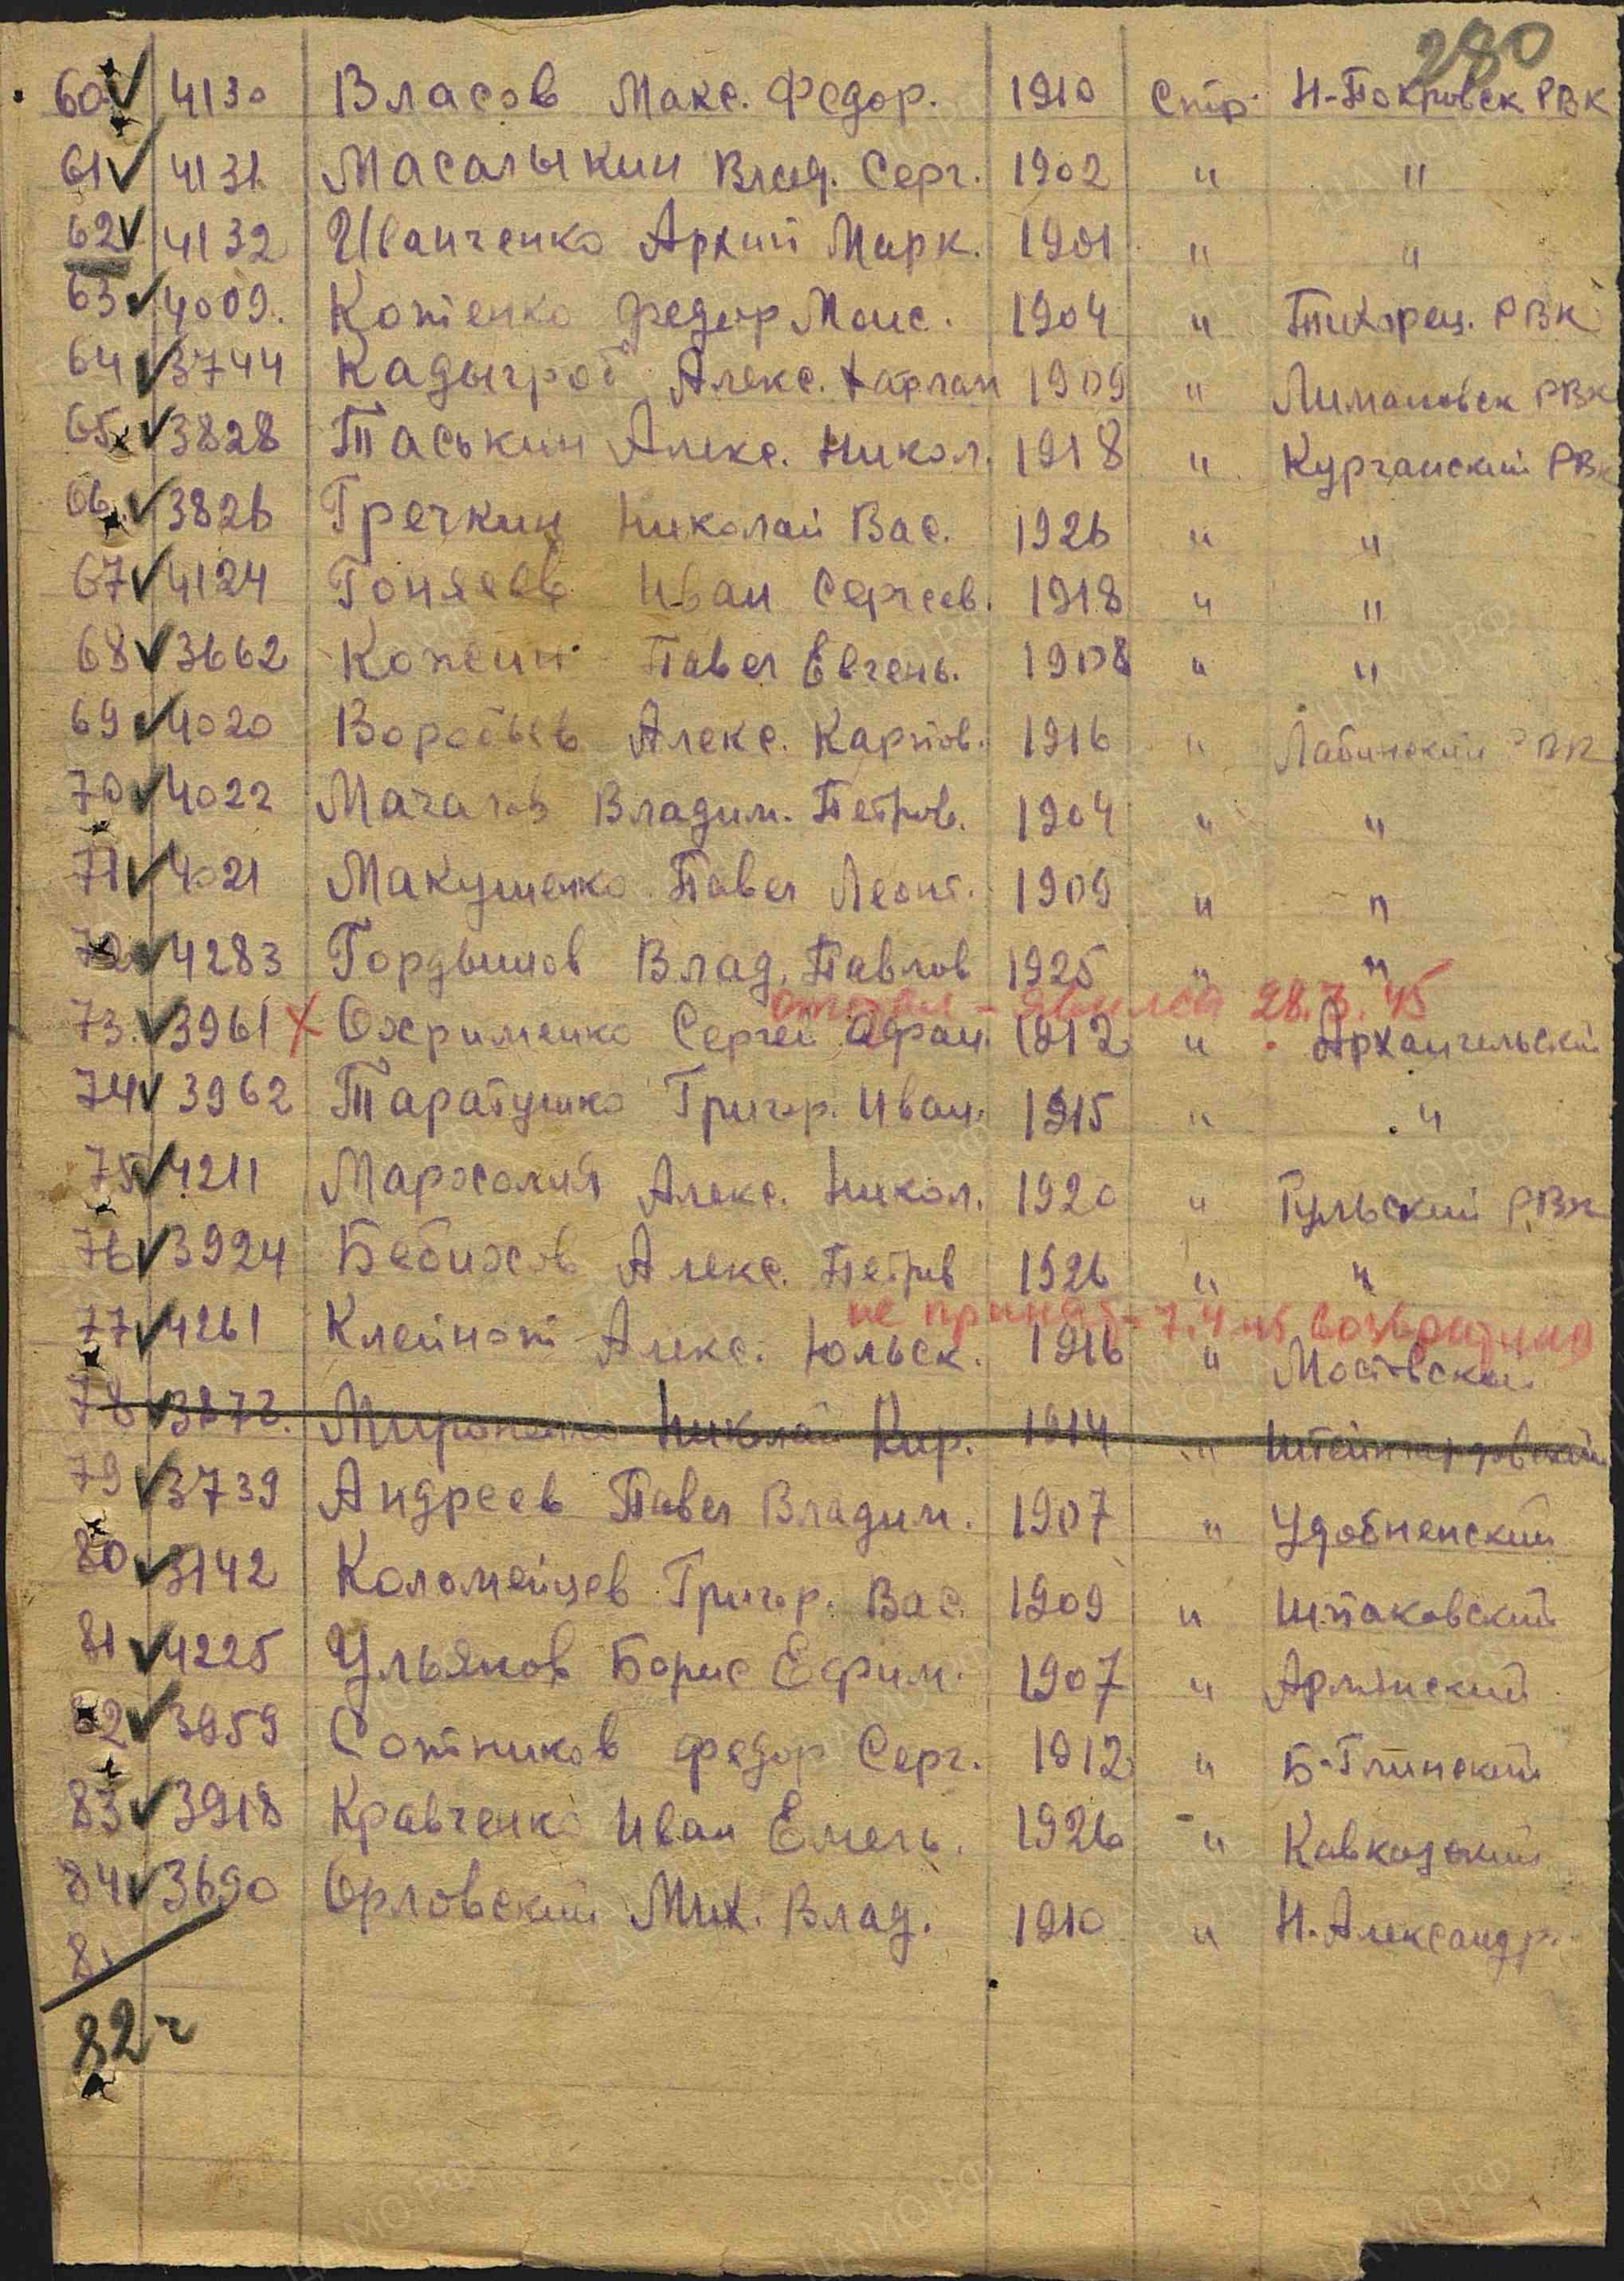 280
60 4130 Власов Макс. Федор. 1910 Стр. Н-Покровск РВК
61 4131 Масалыкин Влад. Серг. 1902 " "
62 4132 Иванченко Архип Марк. 1901 " "
63 4009. Котенко Федор Моис. 1904 " Тихорец. РВК
64 3744 Кадыгроб Алекс. 1909 " Лимановск РВК
65 3828 Таськин Алекс. Никол. 1918 " Курганский РВК
66 3826 Гречкин Николай Вас. 1926 " "
67 4124 Гоняев Иван Сергеев. 1918 " "
68 3662 Кожеин Павел Евгень. 1908 " "
69 4020 Воробьев Алекс. Карпов. 1916 " Лабинский РВК
70 4022 Владим. Петров. 1904 " "
71 4021 Макушенко Павел Леонт. 1909 " "
72 4283 Гордымов Влад. Павлов 1925 " "
отстал - явился 28.3.45
73. 3961 Охрименко Сергей Афан. 1912 " Архангельский
74 3962 Таратушко Григор. Иван. 1915 " "
75 4211 Маржолия Алекс. Никол. 1920 " Тульский РВК
76 3924 Бебихов Алекс. Петров 1926 " "
не принят - 7.4.45
77 4261 Клейнот Алекс. Юльск. 1916 " Мостовской
78 3872. Мироненко Николай Кир. 1914 " Штейнгардовский
79 3739 Андреев Павел Владим. 1907 " Удобненский
80 3142 Коломейцев Григор. Вас. 1909 " Шпаковский
81 4225 Ульяков Борис Ефим. 1907 " Армянский
82 3959 Сотников Федор Серг. 1912 " Б-Глинский
83 3918 Кравченко Иван Емель. 1926 " Кавказский
84 3690 Орловский Мих. Влад. 1910 " Н. Александр.
82 ч